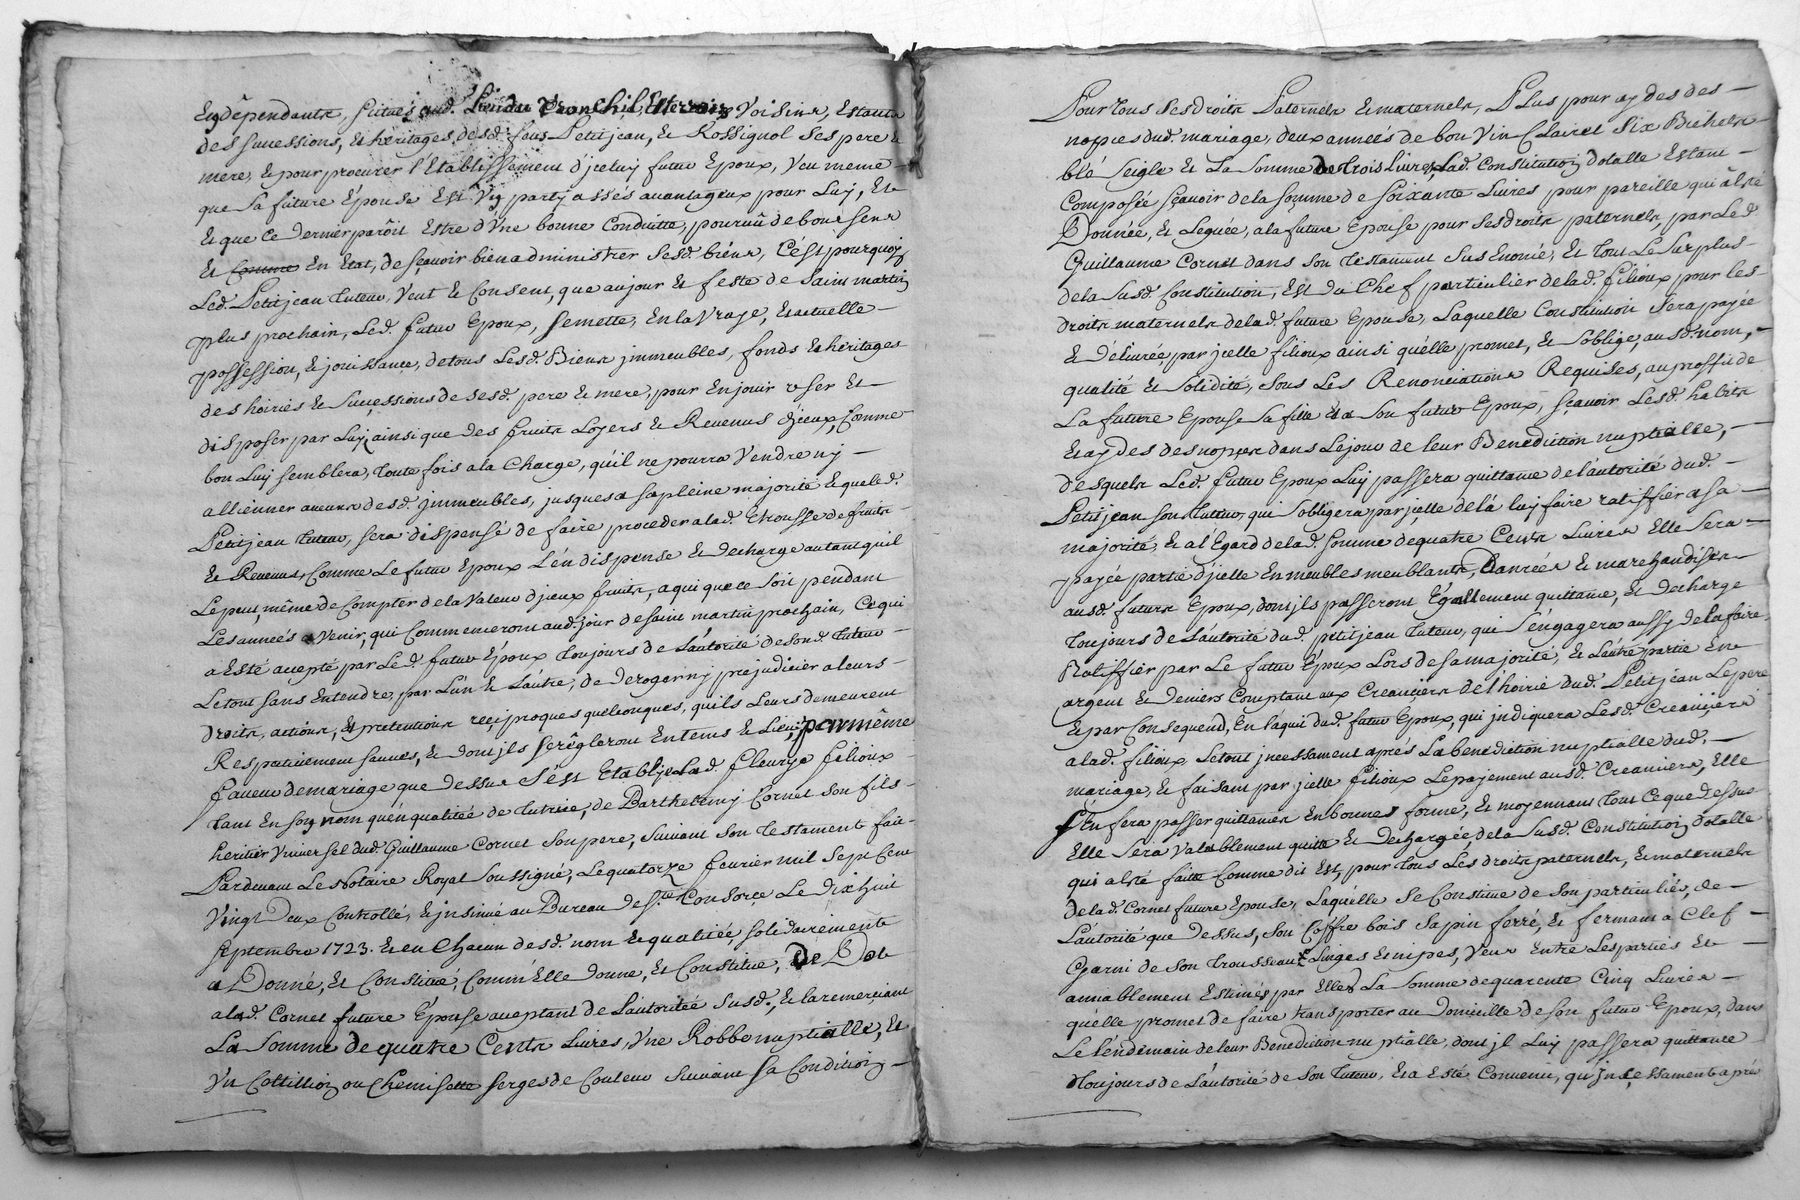 Et dépendants, scitués aud. Lieu du Cronchil, Et terroirs Voisins, Estants
des successions, Et héritages desd. feus Petitjean, et Rossignol ses pere et
mere, Et pour procurer l'Etablissement d'jceluy futur Epoux, veu meme
que sa future Epouse Est Vn party assés auantageux pour Luy, Et
Et que Ce dernier parôit Estre d'Vne bonne Conduitte, pourvû de bons sens
Et Comme En Etat, de sçavoir bien administrer sesd. biens, C'est pourquoy
Led. Petitjean tuteur, Veut Et Consent, que au jour Et feste de saint martin
plus prochain, Led. futur Epoux, se mette, En la Vraye, Et actuelle
possession, Et jouissance, de tous Lesd. Biens jmmeubles, fonds Et héritages
des hoiries Et Successions de sesd. pere Et mere, pour En jouir vser Et
disposer par Luy, ainsi que des fruits Loyers Et Reuenus d'jceux, Comme
bon Luy semblera, toute fois a la Charge, qu'il ne pourra Vendre ny
allienner aucuns desd. jmmeubles, jusques a sa pleine majorité Et que led.
Petitjean tuteur, sera dispensé de faire proceder a lad. Etrousse de fruits
Et Reuenus, Comme Le futur Epoux L'en dispense Et decharge autant qu'il
Le peut, même de Compter de la Valeur d'jceux fruits, a qui que ce soit pendant
Les années a venir, qui Commenceront aud. jour de saint martin prochain, Ce qui
a Esté accepté par Led. futur Epoux toujours de L'autorité de sond. tuteur
Le tout sans Entendre, par L'un Et L'autre, de deroger ny prejudicier a leurs
droits, actions, Et pretentions reçiproques quelconques, qu'ils Leurs demeurent
Respectiuement sauues, Et dont jls se régleront En tems Et Lieu, par même
faueur de mariage que dessus s'est Etablye Lad. fleurye filioux
tant En son nom qu'en qualitée de tutrice, de Barthelemy Cornet son fils
heritier Vniversel dud. Guillaume Cornet son pere, suivant son testament fait
Pardeuant Le Notaire Royal soussigné, Le quatorze feurier mil sept Cent
Vingt Deux Controllé, Et jnsinué au Bureau de Ste Consorçe Le dixhuit
Septembre 1723. Et en Chacun desd. nom Et qualitée solidairement
a Donné, Et Constitué, Comm'Elle donne, Et Constitue, de Dot
a lad. Cornet future Epouse acceptant de L'autoritée susd., Et la remerciant
La Somme de quatre Cents Livres, Vne Robbe nuptialle, Et
Vn Cottillion ou Chemisette serges de Couleur suivant sa Condition
Pour tous ses droits Paternels Et maternels, Plus pour aydes des
nopces dud. mariage, deux années de bon Vin Clairet Six Bichets
blé seigle Et La Somme de trois Livres, Lad. Constitution dotalle Estant
Composée sçavoir de la somme de soixante Livres pour pareille qui a Eté
Donnée, Et Leguée, a la future Epouse pour ses droits paternels, par Led.
Guillaume Cornet dans son testament sus Enoncé, Et tout Le surplus
de la susd. Constitution, Est du Chef particulier de lad. filioux pour les
droits maternels de lad. future Epouse, Laquelle Constitution sera payée
Et délivrée, par jcelle filioux ainsi qu'elle promet, Et s'oblige, ausd. nom,
qualité Et solidité, sous Les Renonciations Requises, au proffit de
La future Epouse sa fille Et a son futur Epoux, sçavoir Lesd. habits
Et aydes des nopces dans Le jour de leur Benediction nuptialle,
desquels Led. futur Epoux Luy passera quittance de l'autorité dud.
Petitjean son tuteur, qui s'obligera par jcelle de la luy faire ratiffier a sa
majorité, Et a l'Egard de lad. somme de quatre Cents Livres Elle sera
payée partie d'jcelle En meubles meublants, Danrées Et marchandises
ausd. futurs Epoux, dont jls passeront Egallement quittance, Et decharge
toujours de L'autorité dud. petitjean tuteur, qui s'engagera aussy de la faire
Ratiffier par Le futur Epoux Lors de sa majorité, Et L'autre partie En
argent Et deniers Comptant aux Creanciers de l'hoirie dud. Petitjean Le pere
Et par Consequend, En l'aquit dud. futur Epoux, qui jndiquera Lesd. Creanciers
a lad. filioux Le tout jncessament apres La benediction nuptialle dud.
mariage, Et faisant par jcelle filioux Le payement ausd. Creanciers, Elle
s'En fera passer quittances En bonnes forme, Et moyennant tout Ce que dessus
Elle sera Valablement quitte Et Dechargée, de la susd. Constitution dotalle
qui a Eté faite Comme dit Est, pour tous Les droits paternels, Et maternels
de lad. Cornet future Epouse, Laquelle se Constitue de son particulier, de
L'autorité que dessus, son Coffre bois sapin ferré, Et fermant a Clef
Garni de son trousseau, Linges Et nipes, Veus Entre Les parties Et
amiablement Estimés par Elles a La Somme de quarente Cinq Livres
qu'elle promet de faire transporter au Domicille de son futur Epoux, dans
Le lendemain de leur Benediction nuptialle, dont jl Luy passera quittance
toujours de L'autorité de son tuteur, Et a Esté Convenu, qu'Incessament aprés